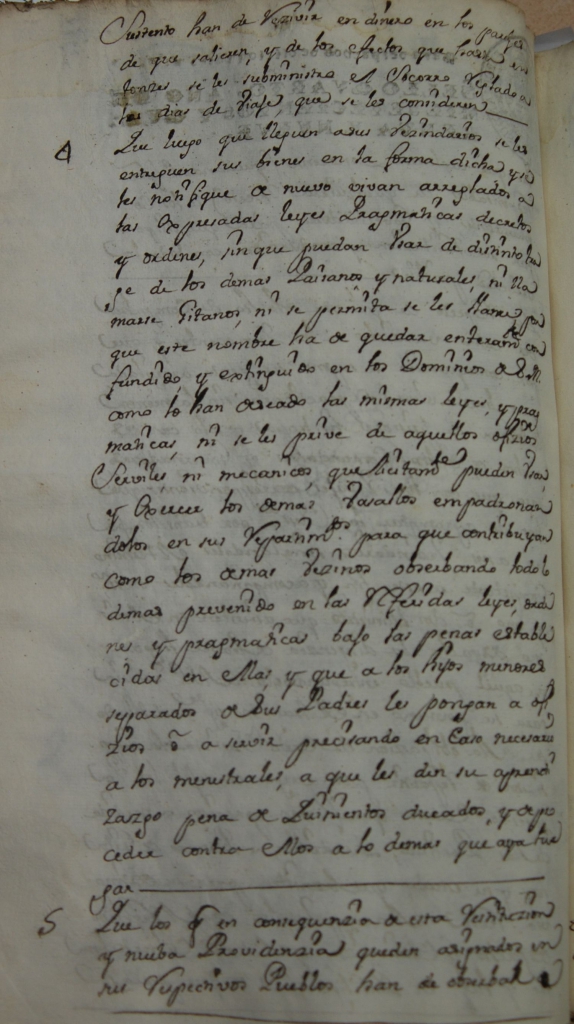 Sustento han de rezivir en dinero en los parajes
de que salieren, y de los efectos que hasta en
tonzes se les subministró el Socorro reglado a
los dias de viaje, que se les consideren
4 Que luego que lleguen a sus vezindarios se les
entreguen sus bienes en la forma dicha y se
les notifique de nuevo vivan arreglados a
las expresadas leyes Pragmaticas decretos
y ordenes, sin que puedan usar de distinto tra
ge de los demas Paisanos y naturales, ni lla
marse Gitanos, ni se permita se les llame por
que este nombre ha de quedar enteramte con
fundido y extinguido en los Dominios de S.M.
como lo han deseado las mismas leyes, y prag
maticas, ni se les prive de aquellos ofizios
Serviles, ni mecanicos, que licitamte pueden usar,
y exercer los demas vasallos empadronan
dolos en sus repartimtos para que contribuyan
como los demas vezinos observando todo lo
demas prevenido en las referidas leyes, orde
nes y pragmaticas bajo las penas estable
cidas en ellas, y que a los hijos menores
separados de sus Padres les pongan a ofi
zios ó a servir precisando en caso necesario
a los menestrales, a que les den su aprendi
zazgo pena de quinientos ducados, y de pro
ceder contra ellos a lo demas que aya lu
gar
5 Que los q en consequenzia de esta restituzion
y nueba Providenzia queden asignados en
sus respectivos Pueblos han de observar